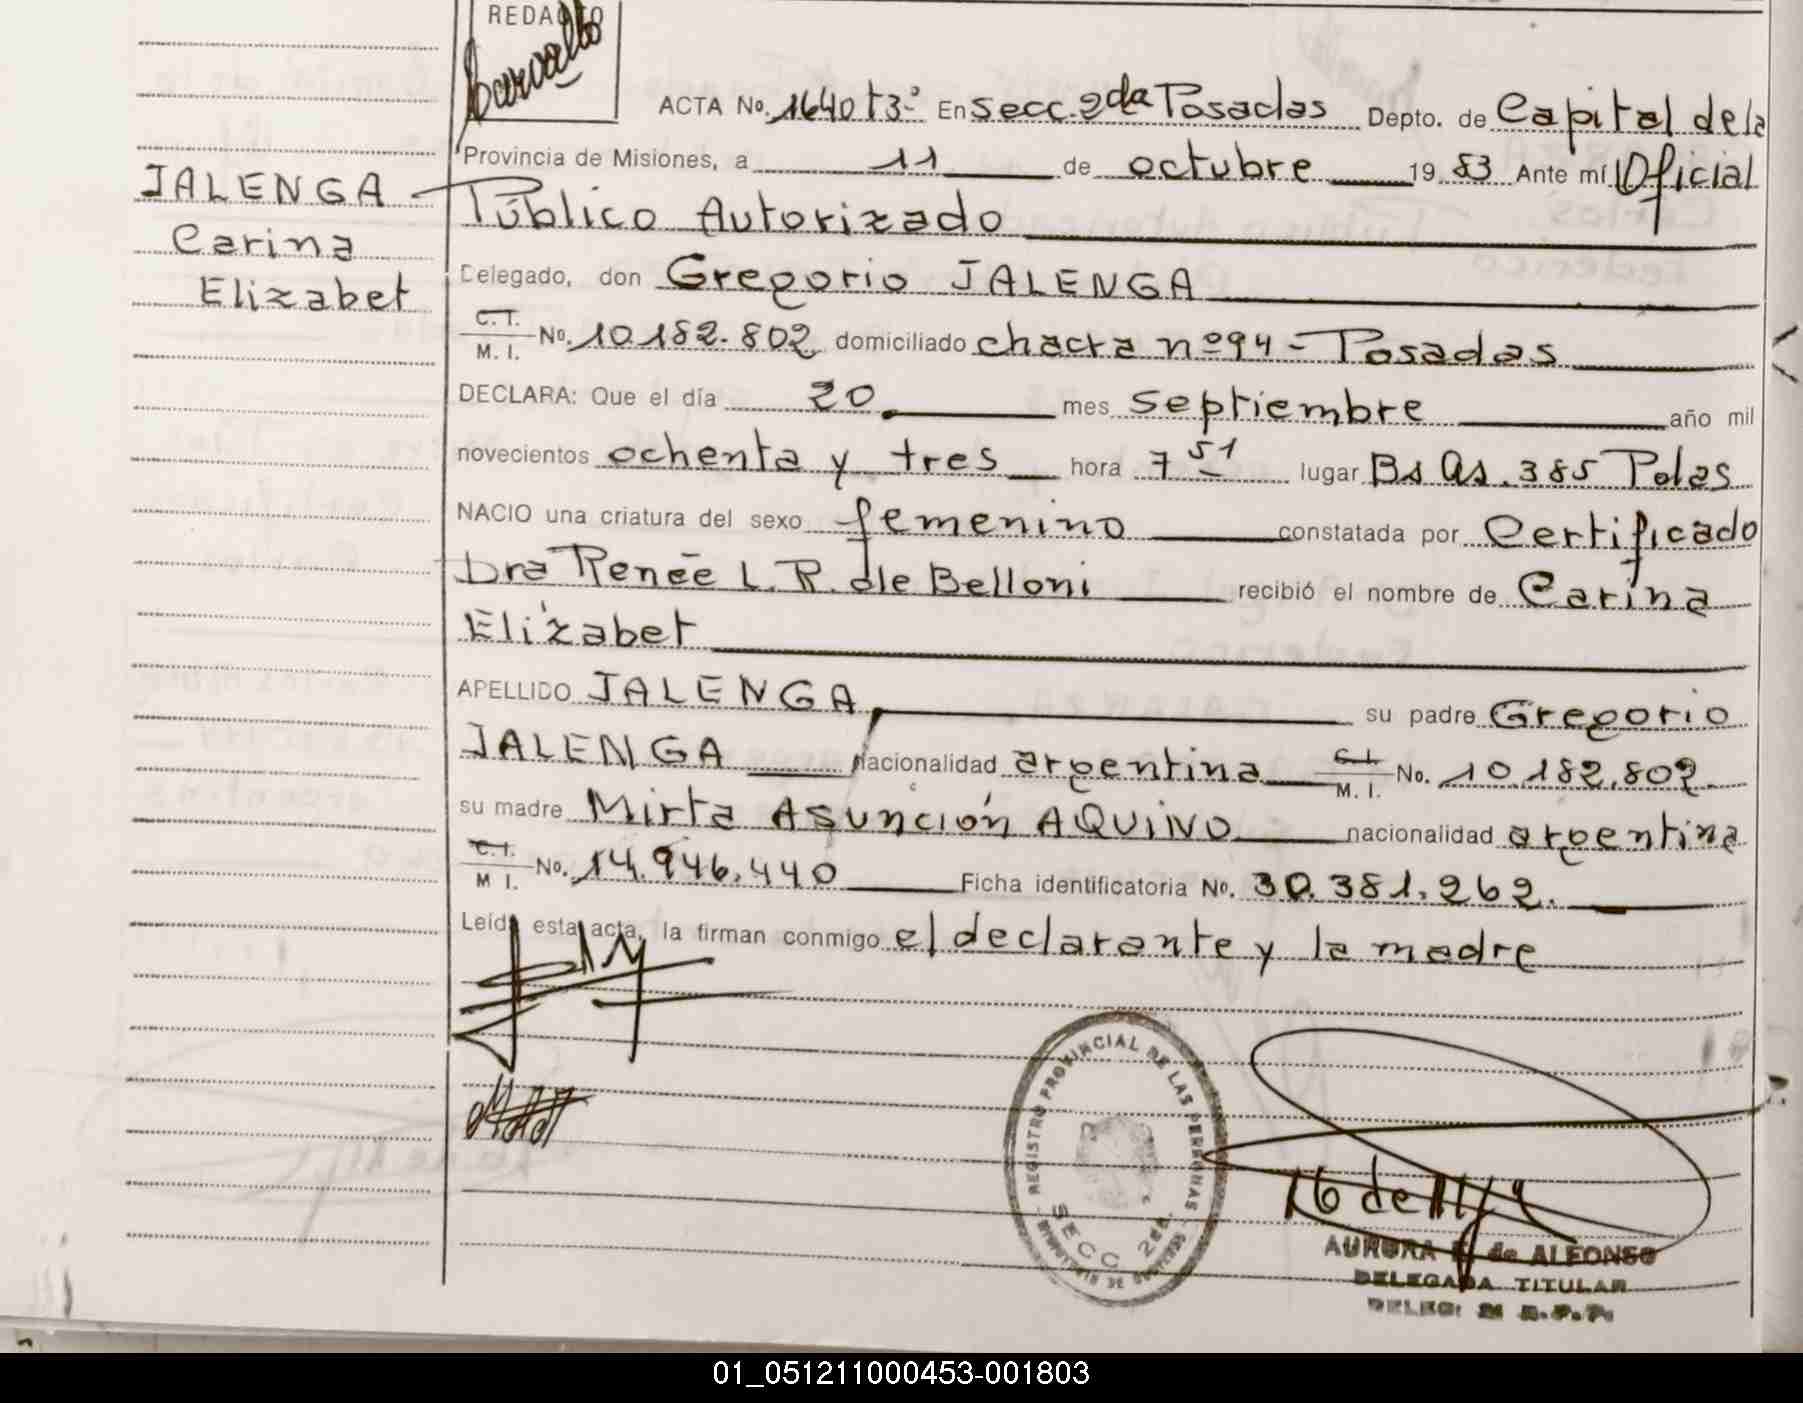 REDACTO
Carvallo
ACTA No. 1640 t3° En Secc. 2da Posadas Depto. de Capital de la
Provincia de Misiones, a 11 de octubre 1983 Ante mí Oficial
Público Autorizado
JALENGA
Carina
Elizabet
Delegado, don Gregorio JALENGA
C.I.
M. I. No. 10.182.802 domiciliado chacra nº 94 - Posadas
DECLARA: Que el día 20 mes septiembre año mil
novecientos ochenta y tres hora 7 51 lugar Bs As. 385 Pdas
NACIO una criatura del sexo femenino constatada por Certificado
Dra Renée L. R. de Belloni recibió el nombre de Carina
Elizabet
APELLIDO JALENGA su padre Gregorio
JALENGA nacionalidad argentina C.I.
M. I. No. 10.182.802
su madre Mirta Asunción AQUINO nacionalidad argentina
C.I.
M I. No. 14.946.440 Ficha identificatoria No. 30.381.262.
Leída esta acta, la firman conmigo el declarante y la madre
REGISTRO PROVINCIAL DE LAS PERSONAS
SECC 2da.
AURORA de ALFONSO
DELEGADA TITULAR
01_051211000453-001803